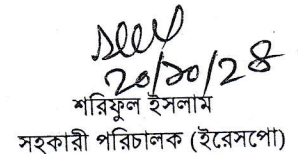 ২০/১০/২৪
শরিফুল ইসলাম
সহকারী পরিচালক (ইরেসপো)